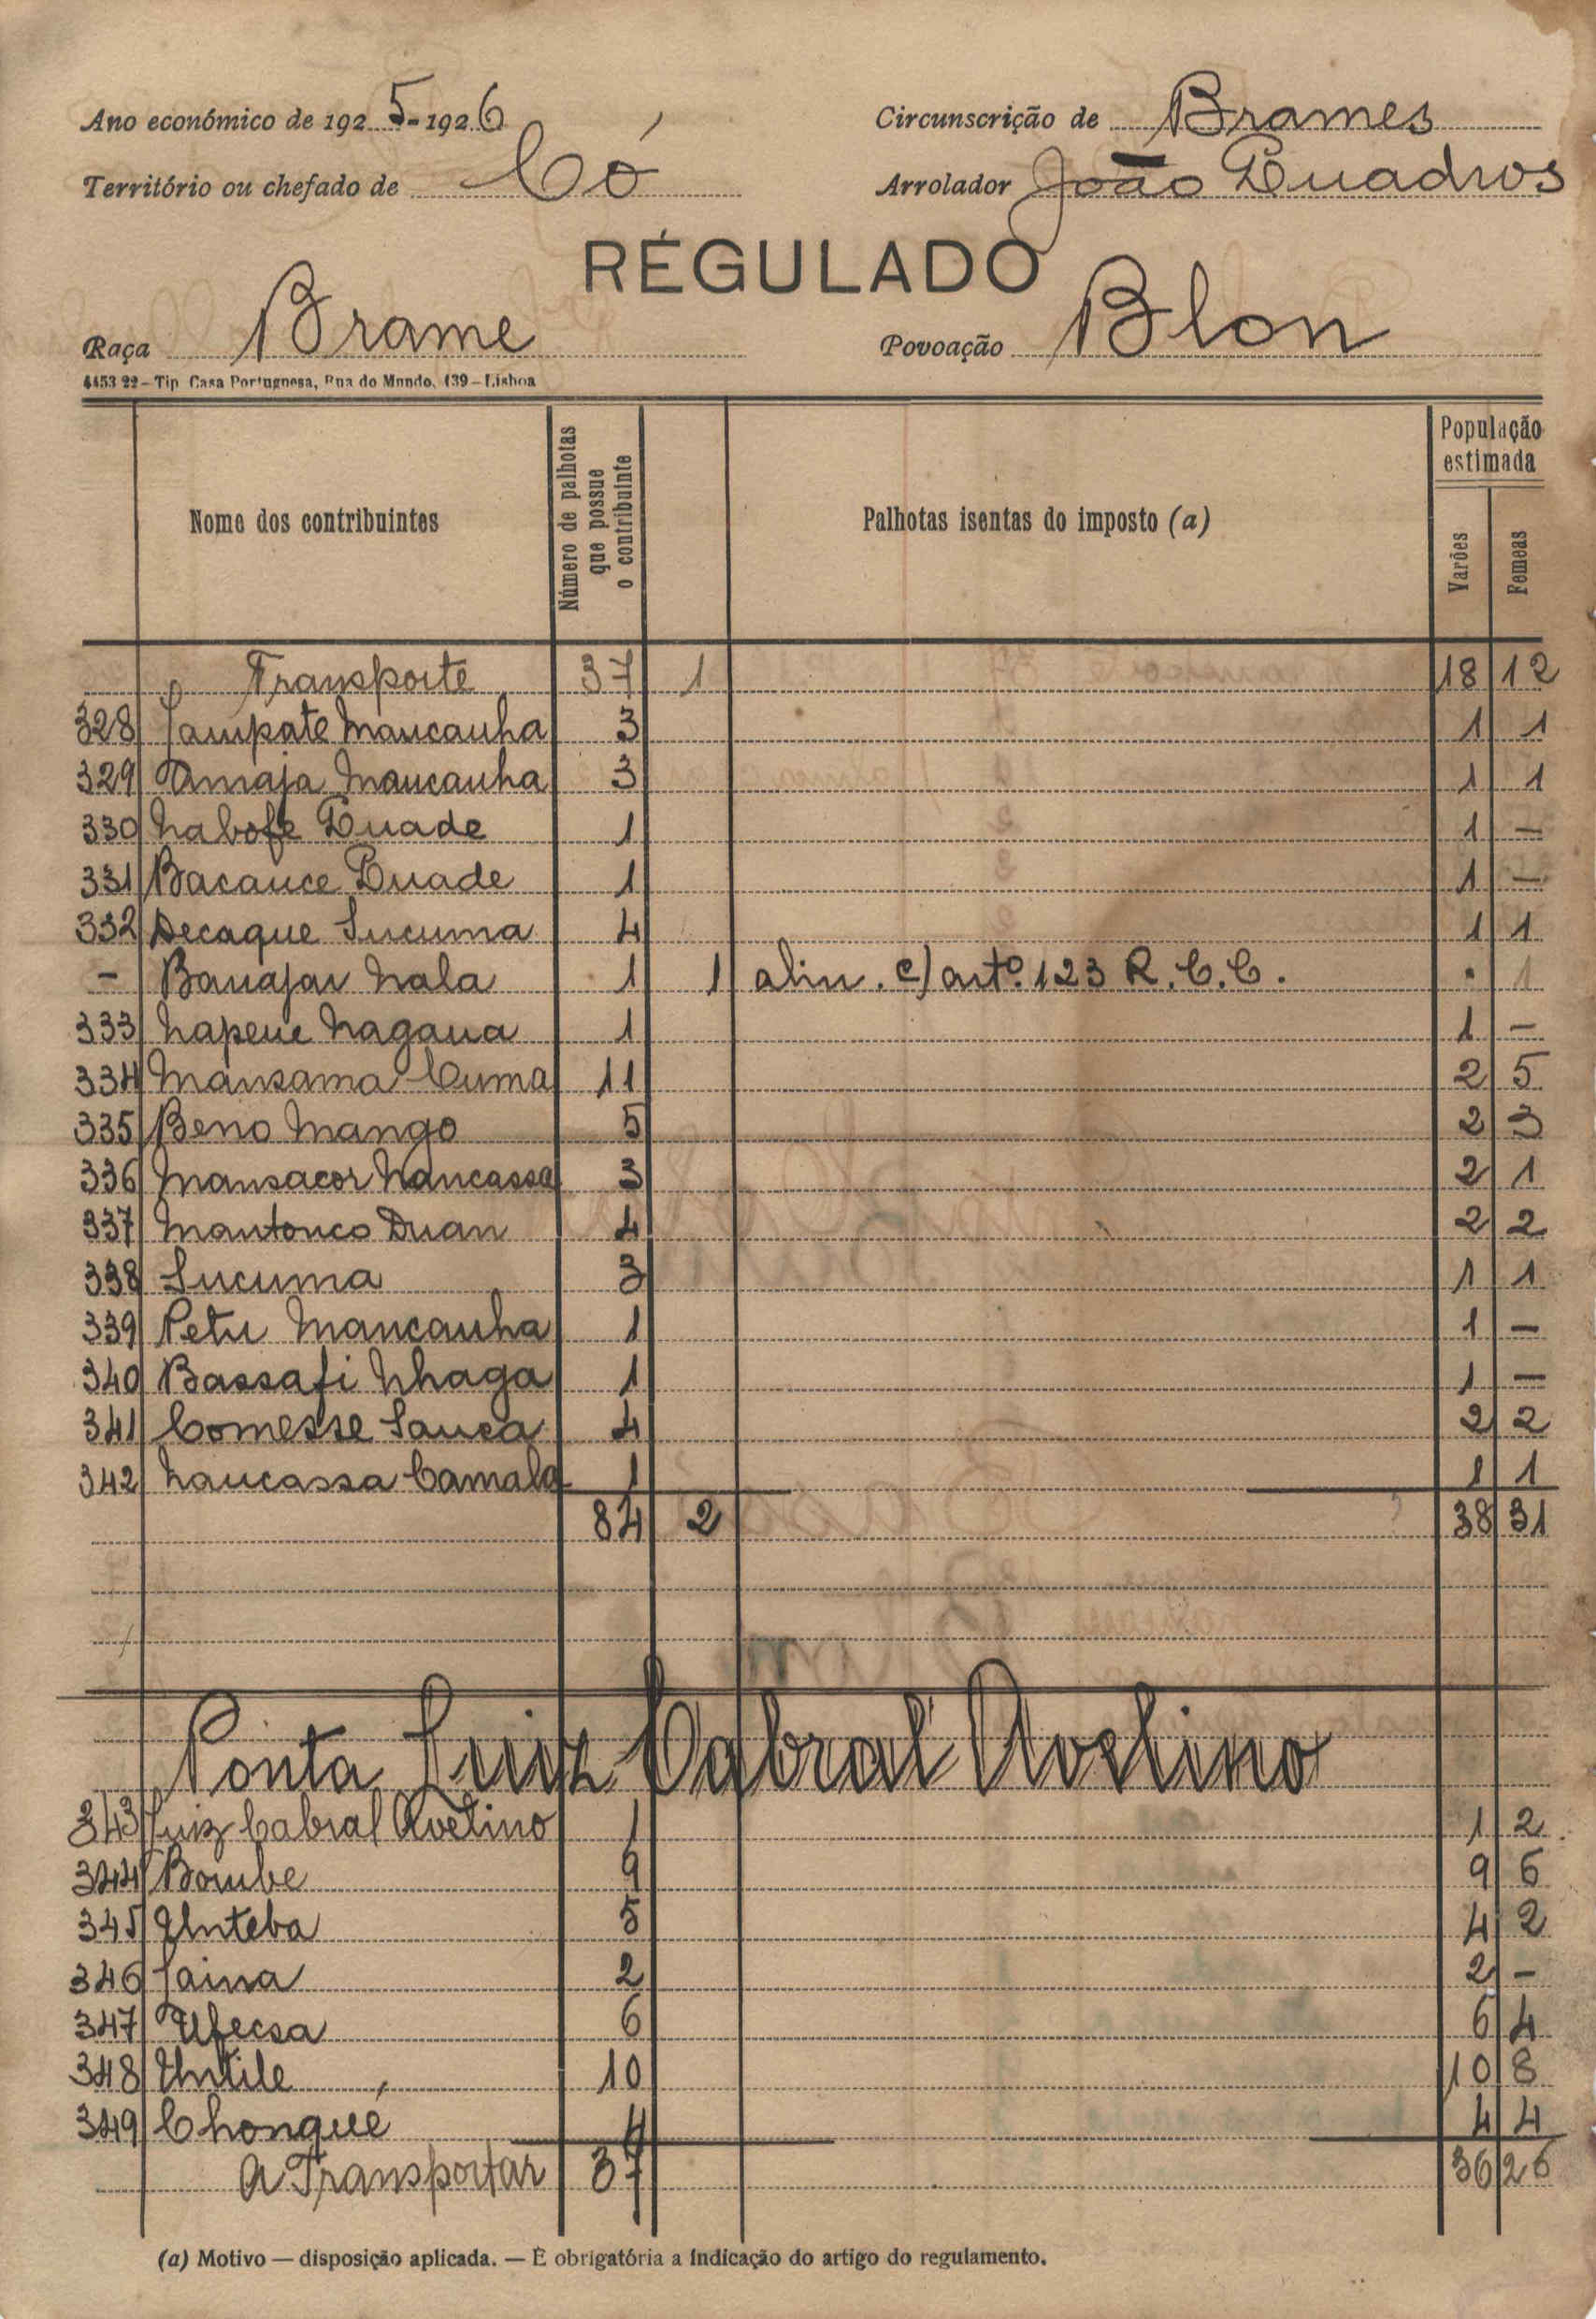 Ano económico de 1925-1926 Circunscrição de Brames
Território ou chefado de Có Arrolador João Quadros
RÉGULADO
Raça Brame Povoação Blon
4453 22 – Tip. Casa Portuguesa, Rua do Mundo, 139 – Lisboa
Nome dos contribuintes Número de palhotas que possue o contribuinte Palhotas isentas do imposto (a) População estimada Varões Femeas
Transporte 37 1 18 12
328 Jampate Mancanha 3 1 1
329 Amaja Mancanha 3 1 1
330 Nabofe Quade 1 1 –
331 Bacance Quade 1 1 –
332 Decaque Sucuma 4 1 1
– Banajau Nala 1 1 alin. c) artº. 123 R. C. C. . 1
333 Napene Nagana 1 1 –
334 Mansama Cuma 11 2 5
335 Beno Mango 5 2 3
336 Mansacor Nancassa 3 2 1
337 Mantonco Duan 4 2 2
338 Sucuma 3 1 1
339 Petu Mancanha 1 1 –
340 Bassafi Nhaga 1 1 –
341 Comesse Sanca 4 2 2
342 Nancassa Camala 1 1 1
84 2 38 31
Ponta Luiz Cabral Avelino
343 Luiz Cabral Avelino 1 1 2
344 Bombe 9 9 6
345 Unteba 5 4 2
346 Jaina 2 2 –
347 Ufecsa 6 6 4
348 Untile 10 10 8
349 Chonqué 4 4 4
A Transportar 37 36 26
(a) Motivo — disposição aplicada. — É obrigatória a indicação do artigo do regulamento.